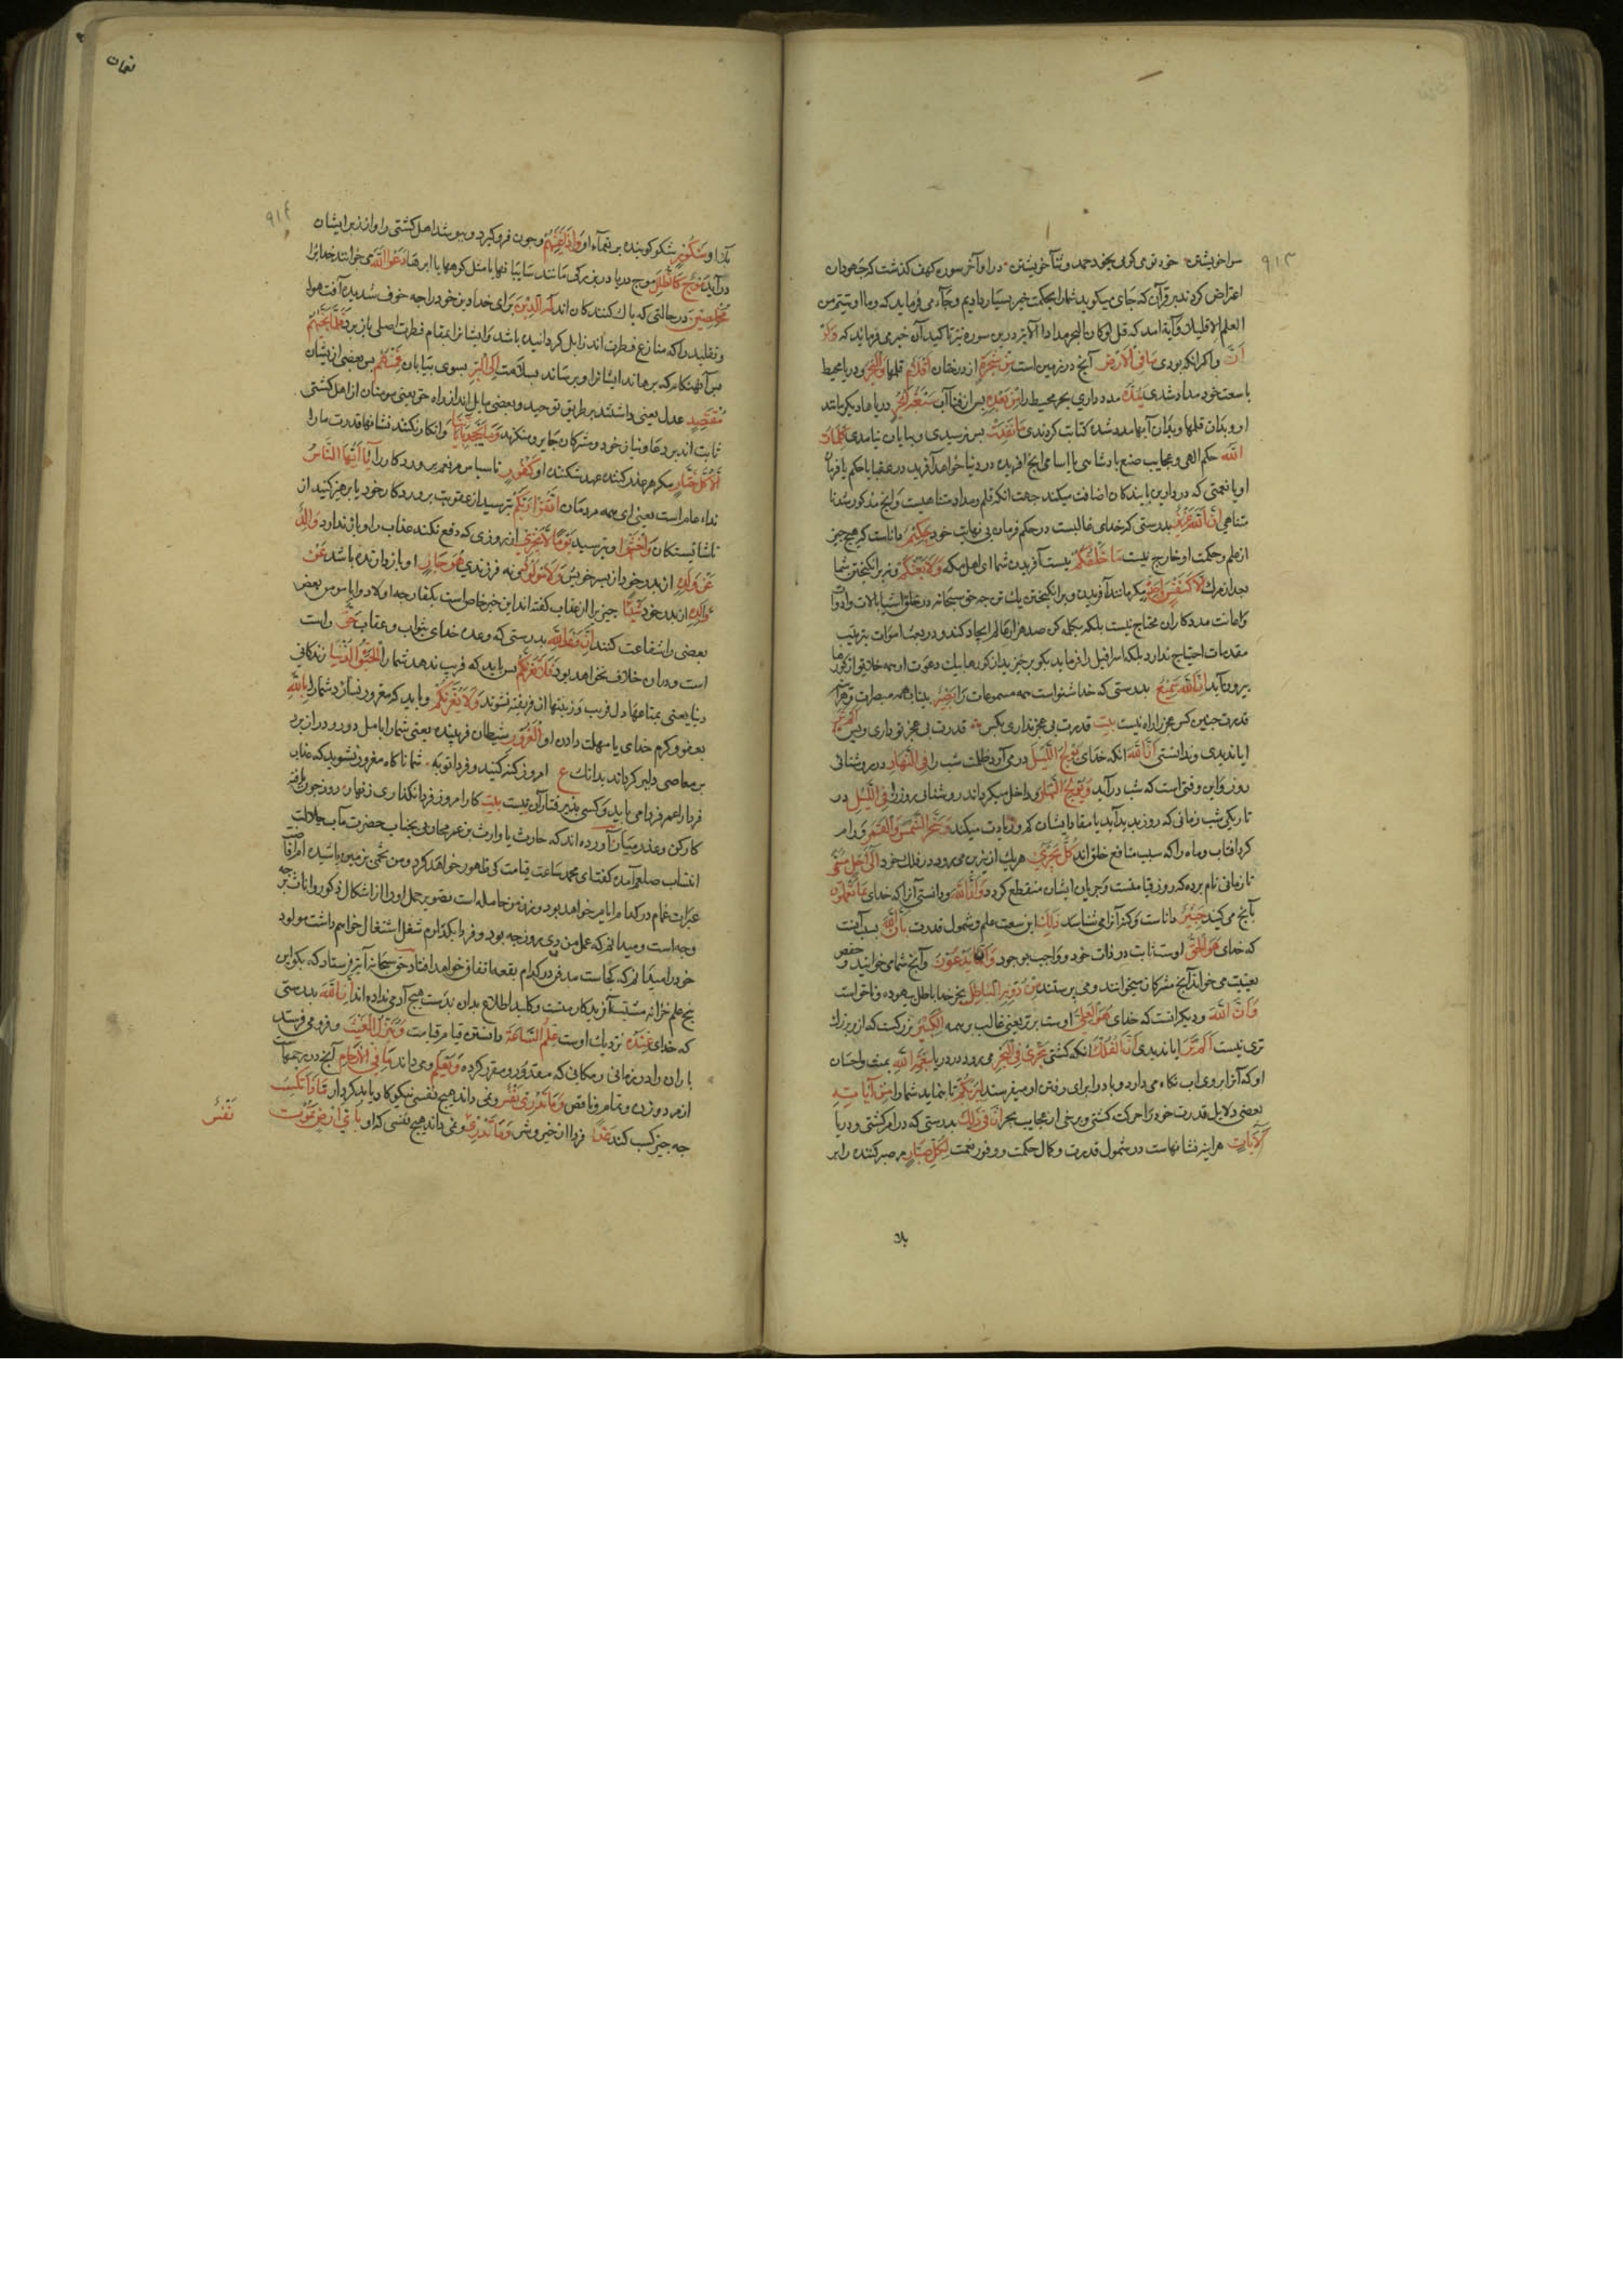 ۹۱۳
سزا خویشتن خود تو می کوی بخود حمد و ثنا خویشتن در اواخر سوره کهف گذشت که جهودان
اعتراض کردند بر قرآن که جای میکوید شما را بحکمت خبر بسیار دادیم و جاء می فرماید که وما اوتیتم من
العلم الا قلیلا و آیة امد که قل لو کان البحر مدادا الآیة در این سوره نیز تاکید آن خبر می فرماید که وَلَوْ
اَنَّ واگر آنکه بودی مَا فِی الْاَرْضِ آنچ در زمین است مِنْ شَجَرَةٍ از درختان اَقْلَامٌ قلمها وَالْبَحْرُ و دریا محیط
با سعت خود مداد شدی یَمُدُّهُ مدد داری بحر محیط را مِنْ بَعْدِهِ پس از فنا آب سَبْعَةُ اَبْحُرٍ دریاها دیکر مانند
او و بدان قلمها و بدان آبها مدد شده کتابت کردندی مَا نَفِدَتْ بس نرسیدی و بپایان نیامدی کَلِمَاتُ
اللّٰهِ حکم الهی و عجایب صنع پادشاهی
متناهی اِنَّ اللّٰهَ عَزِیزٌ بدرستی که خدای غالبست در حکم فرمان بی نهایت خود حَکِیمٌ داناست که هیچ چیز
از علم و حکمت او خارج نیست مَا خَلْقُکُمْ نیست آفریدن شما ای اهل مکه وَلَا بَعْثُکُمْ و نه برانکیختن شما
بعد از مرک اِلَّا کَنَفْسٍ وَاحِدَةٍ مکر مانند آفریدن و برانکیختن یک تن چه حق سبحانه در خلق اشیا بالات و ادوات
و اعانت مددکاران محتاج نیست بلکه بیکلمه کن صد هزار عالم ایجاد کند و در بعث اموات بترتیب
مقدمات احتیاج ندارد بلکه اسرافیل را فرماید بکو برخیزید از کورها بیک دعوت او همه خلایق از کورها
بیرون آید اِنَّ اللّٰهَ سَمِیعٌ بدرستی که خدا شنواست همه مسموعات را بَصِیرٌ بینا به همه مبصرات
قدرت چنین کس عجز را راه نیست بیت قدرت بی عجز نداری بکس قدرت بی عجز تو داری و بس اَلَمْ تَرَ
ایا ندیدی و ندانستی اَنَّ اللّٰهَ آنکه خدای یُولِجُ اللَّیْلَ در می آرد ظلمت شب را فِی النَّهَارِ در روشنائی
روز و این وقتی است که شب درآید وَیُولِجُ النَّهَارَ و داخل میکرداند روشنائی روز را فِی اللَّیْلِ در
تاریکی شب زمانی که روز پدید آید یا مقادیر ایشان کم و زیادت میکند وَسَخَّرَ الشَّمْسَ وَالْقَمَرَ و رام
کرد افتاب و ماه را که سبب منافع خلق اند کُلٌّ یَجْرِی هر یک از نیرین می رود در فلک خود اِلٰی اَجَلٍ مُسَمًّی
تا زمانی نام برده که روز قیامتست و جریان ایشان منقطع کردد وَاَنَّ اللّٰهَ و دانستی آنرا که خدای بِمَا تَعْمَلُونَ
بآنچ می کنید خَبِیرٌ داناست و کنه آنرا می شناسد ذٰلِکَ این سعت علم و شمول قدرت بِاَنَّ اللّٰهَ بسبب آنست
که خدای هُوَ الْحَقُّ اوست ثابت در ذات خود و واجب بوجود وَاَنَّ مَا یَدْعُونَ و آنچ شما می خوانید و حفص
بغیبت می خواند آنچ مشرکان میخوانند و می پرستند مِنْ دُونِهِ الْبَاطِلُ بجز خدا باطل بیهوده و ناحق است
وَاَنَّ اللّٰهَ و دیکر آنست که خدای هُوَ الْعَلِیُّ اوست برتر یعنی غالب بر همه الْکَبِیرُ بزرکست که از او بزرک
تری نیست اَلَمْ تَرَ ایا ندیدی اَنَّ الْفُلْکَ آنکه کشتی تَجْرِی فِی الْبَحْرِ می رود در دریا بِنِعْمَةِ اللّٰهِ بمنت و احسان
او که آنرا بر روی اب نکاه می دارد و باد را برای رفتن او میفرستد لِیُرِیَکُمْ تا بنماید شما را مِنْ آیَاتِهِ
بعضی دلایل قدرت خود را حرکت کشتی و برخی از عجایب بحر اِنَّ فِی ذٰلِکَ بدرستی که در امر کشتی و دریا
لَآیَاتٍ هر اینه نشانهاست در شمول قدرت و کمال حکمت و وفور نعمت لِکُلِّ صَبَّارٍ مر صبر کننده را بر
بلا
لقمان
۹۱٤
بلا او شَکُورٍ شکر کوینده بر نعماء او وَاِذَا غَشِیَهُمْ و چون فرو کیرد و بپوشد اهل کشتی را و از زبر ایشان
درآید مَوْجٌ کَالظُّلَلِ موج دریا در بزرکی مانند سایبانها یا مثل کوهها یا ابرها دَعَوُا اللّٰهَ می خوانند خدایرا
مُخْلِصِینَ در حالتی که پاک کنندکان اند لَهُ الدِّینَ برای خدا دین خود را چه خوف شدید آفت هوا
و تقلید را که منازع فطرت اند زایل کردانیده باشد و ایشانرا بمقام فطرت اصلی باز برد فَلَمَّا نَجَّاهُمْ
پس آنهنکام که برهاند ایشانرا و برساند بسلامت اِلَی الْبَرِّ بسوی بیابان فَمِنْهُمْ پس بعضی از ایشان
مُقْتَصِدٌ عدل یعنی داشتند بر طریق توحید و بعضی مایل اند از راه حق یعنی مومنان از اهل کشتی
ثابت اند بر دعا و نیاز خود و مشرکان جایر و منکرند وَمَا یَجْحَدُ بِآیَاتِنَا و انکار نکنند نشانها قدرت ما را
اِلَّا کُلُّ خَتَّارٍ مکر هر غدر کننده عهد شکننده او کَفُورٍ ناسپاس مر نعم پروردکار را یَا اَیُّهَا النَّاسُ
نداء عام است یعنی ای همه مردمان اتَّقُوا رَبَّکُمْ بترسید از عقوبت پروردکار خود یا پرهیز کنید از
ناشایستکان وَاخْشَوْا و بترسید یَوْمًا لَا یَجْزِی از روزی که دفع نکند عذاب را و باز ندارد وَالِدٌ
عَنْ وَلَدِهِ از پدر خود از پسر خویش وَلَا مَوْلُودٌ و نه فرزندی هُوَ جَازٍ او باز دارنده باشد عَنْ
وَالِدِهِ از پدر خود شَیْئًا چیزی را از عذاب کفته اند این خبر خاص است بکفار چه اولاد و ابا مومن بعض
بعضی را شفاعت کنند اِنَّ وَعْدَ اللّٰهِ بدرستی که وعده خدای بثواب و عقاب حَقٌّ راست
است و در آن خلاف نخواهد بود فَلَا تَغُرَّنَّکُمْ پس باید که فریب ندهد شما را الْحَیٰوةُ الدُّنْیَا زندکانی
دنیا یعنی بمتاعهاء دل فریب و زینتها آن فریفته نشوند وَلَا یَغُرَّنَّکُمْ و باید که مغرور نسازد شما را بِاللّٰهِ
بعفو و کرم خدای یا مهلت دادن او الْغَرُورُ شیطان فریبنده یعنی شما را بامل دور و دراز برد
بر معاصی دلیر کرداند بدانک ع امروز کنه کنید و فردا توبه شما ناکاه مغرور نشوید که عذاب
فردا را عمر فردا می باید و کسی پذیرفتار آن نیست بیت کار امروز بفردا نکذاری زنهار روز چون یافته
کار کن و عذر میار آورده اند که حارث یا وارث بن عمر محاربی بجناب حضرت مآب جلالت
انتساب صلعم آمده کفت ای محمد ساعت قیامت کی ظاهر خواهد کرد و من تخمی بزمین پاشیده ام
خود را میدانم که کجاست مدفن در کدام بقعه اتفاق خواهد افتاد حق سبحانه آیه فرستاد که بکو این
پنج علم خزانه مشیت آفریدکار منست و کلید اطلاع بدان بدست هیچ آدمی نداده اند اِنَّ اللّٰهَ بدرستی
که خدای عِنْدَهُ نزدیک اوست عِلْمُ السَّاعَةِ دانستن قیام قیامت وَیُنَزِّلُ الْغَیْثَ و فرو می فرستد
باران را در زمانی و مکانی که مقدور و مقرر کرده وَیَعْلَمُ و می داند مَا فِی الْاَرْحَامِ آنچ در رحمهاست
از مرد و زن و تمام و ناقص وَمَا تَدْرِی نَفْسٌ و نمی داند هیچ نفسی نیکوکار یا بدکردار مَاذَا تَکْسِبُ
چه چیز کسب کند غَدًا فردا از خیر و شر وَمَا تَدْرِی و نمی داند هیچ نفسی که او بِاَیِّ اَرْضٍ تَمُوتُ
نَفْسٌ